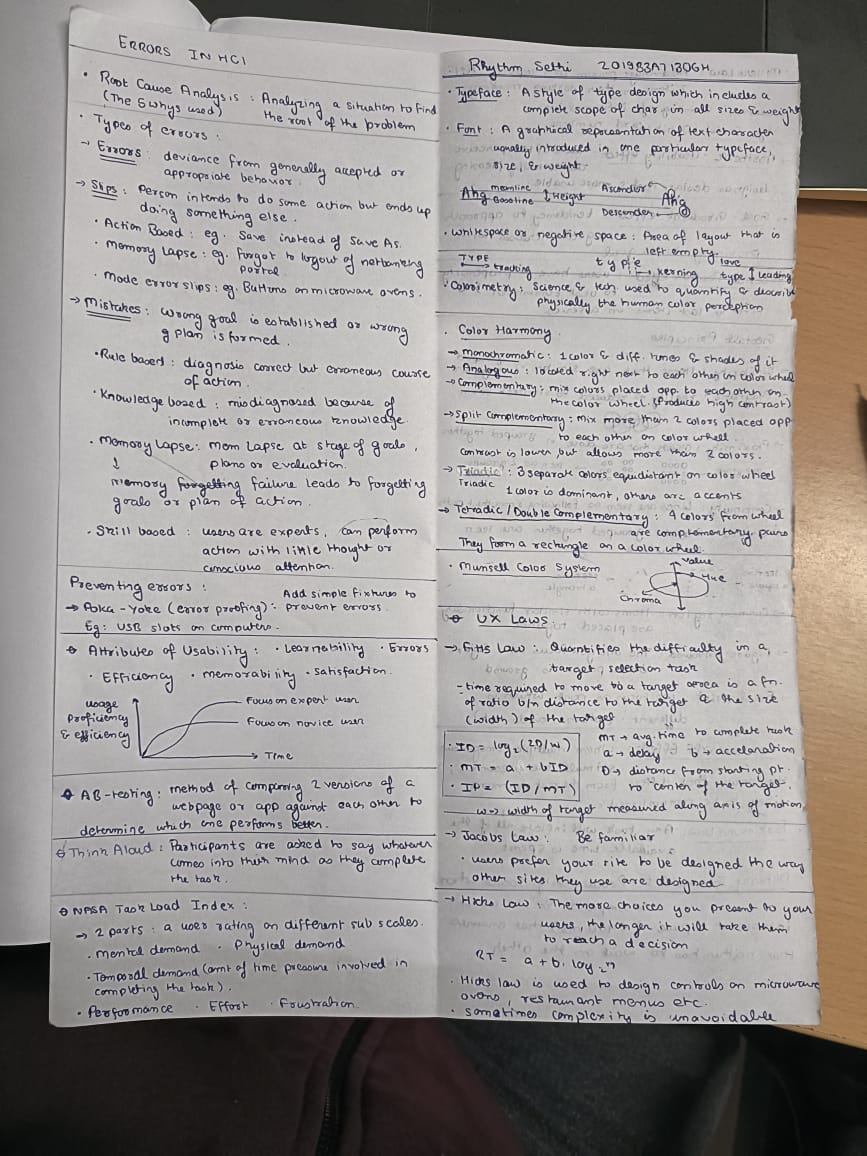 ERRORS IN HCI
• Root Cause Analysis : Analyzing a situation to find
(The 5 whys used) the root of the problem
• Types of errors :
→ Errors : deviance from generally accepted or
appropriate behavior
→ Slips : Person intends to do some action but ends up
doing something else.
• Action Based : eg. Save instead of Save As.
• Memory Lapse : eg. Forgot to logout of netbanking
portal
• Mode error slips : eg. Buttons on microwave ovens.
→ Mistakes : Wrong goal is established or wrong
plan is formed.
• Rule based : diagnosis correct but erroneous course
of action.
• Knowledge based : misdiagnosed because of
incomplete or erroneous knowledge.
• Memory Lapse : Mem lapse at stage of goals,
↓ plans or evaluation.
Memory forgetting failure leads to forgetting
goals or plan of action.
• Skill based : users are experts, can perform
action with little thought or
conscious attention.
Preventing errors :
Add simple fixtures to
→ Poka-Yoke (error proofing) : prevent errors.
Eg: USB slots on computers.
Attributes of Usability : • Learnability • Errors
• Efficiency • memorability • satisfaction.
usage
proficiency
& efficiency
Focus on expert user
Focus on novice user
→ Time
AB-testing : method of comparing 2 versions of a
webpage or app against each other to
determine which one performs better.
Think Aloud : Participants are asked to say whatever
comes into their mind as they complete
the task.
NASA Task Load Index :
→ 2 parts : a user rating on different sub scales.
• mental demand • Physical demand
• Temporal demand (amt of time pressure involved in
completing the task).
• Performance • Effort • Frustration.
Rhythm Sethi 2019B3A7130GH
• Typeface : A style of type design which includes a
complete scope of char, in all sizes & weight
• Font : A graphical representation of text character
usually introduced in one particular typeface,
size, & weight.
Ahg meanline Baseline ↕ Height Ascender Descender Ahg
• Whitespace or negative space : Area of layout that is
left empty.
TYPE tracking type kerning love type ↕ Leading
• Colorimetry : Science & tech used to quantify & describe
physically the human color perception
• Color Harmony
→ monochromatic : 1 color & diff. tones & shades of it
→ Analogous : located right next to each other on color wheel
→ Complementary : mix colors placed opp. to each other on
the color wheel. (Produces high contrast)
→ Split Complementary : Mix more than 2 colors placed opp
to each other on color wheel.
contrast is lower, but allows more than 2 colors.
→ Triadic : 3 separate colors equidistant on color wheel
Triadic 1 color is dominant, others are accents
→ Tetradic / Double Complementary : 4 colors from wheel
are complementary pairs
They form a rectangle on a color wheel.
• Munsell Color System
Value
Hue
Chroma
UX Laws.
→ Fitts Law : Quantifies the difficulty in a
target selection task
= time required to move to a target area is a fn.
of ratio b/n distance to the target & the size
(width) of the target
• ID = log₂(2D/W)
• MT = a + bID
• IP = (ID/MT)
MT → avg. time to complete task
a → delay b → acceleration
D → distance from starting pt.
to center of the target.
W → width of target measured along axis of motion
→ Jacobs Law : Be familiar
• users prefer your site to be designed the way
other sites they use are designed
→ Hicks Law : The more choices you present to your
users, the longer it will take them
to reach a decision
RT = a + b. log₂n
• Hicks law is used to design controls on microwave
ovens, restaurant menus etc.
• sometimes complexity is unavoidable